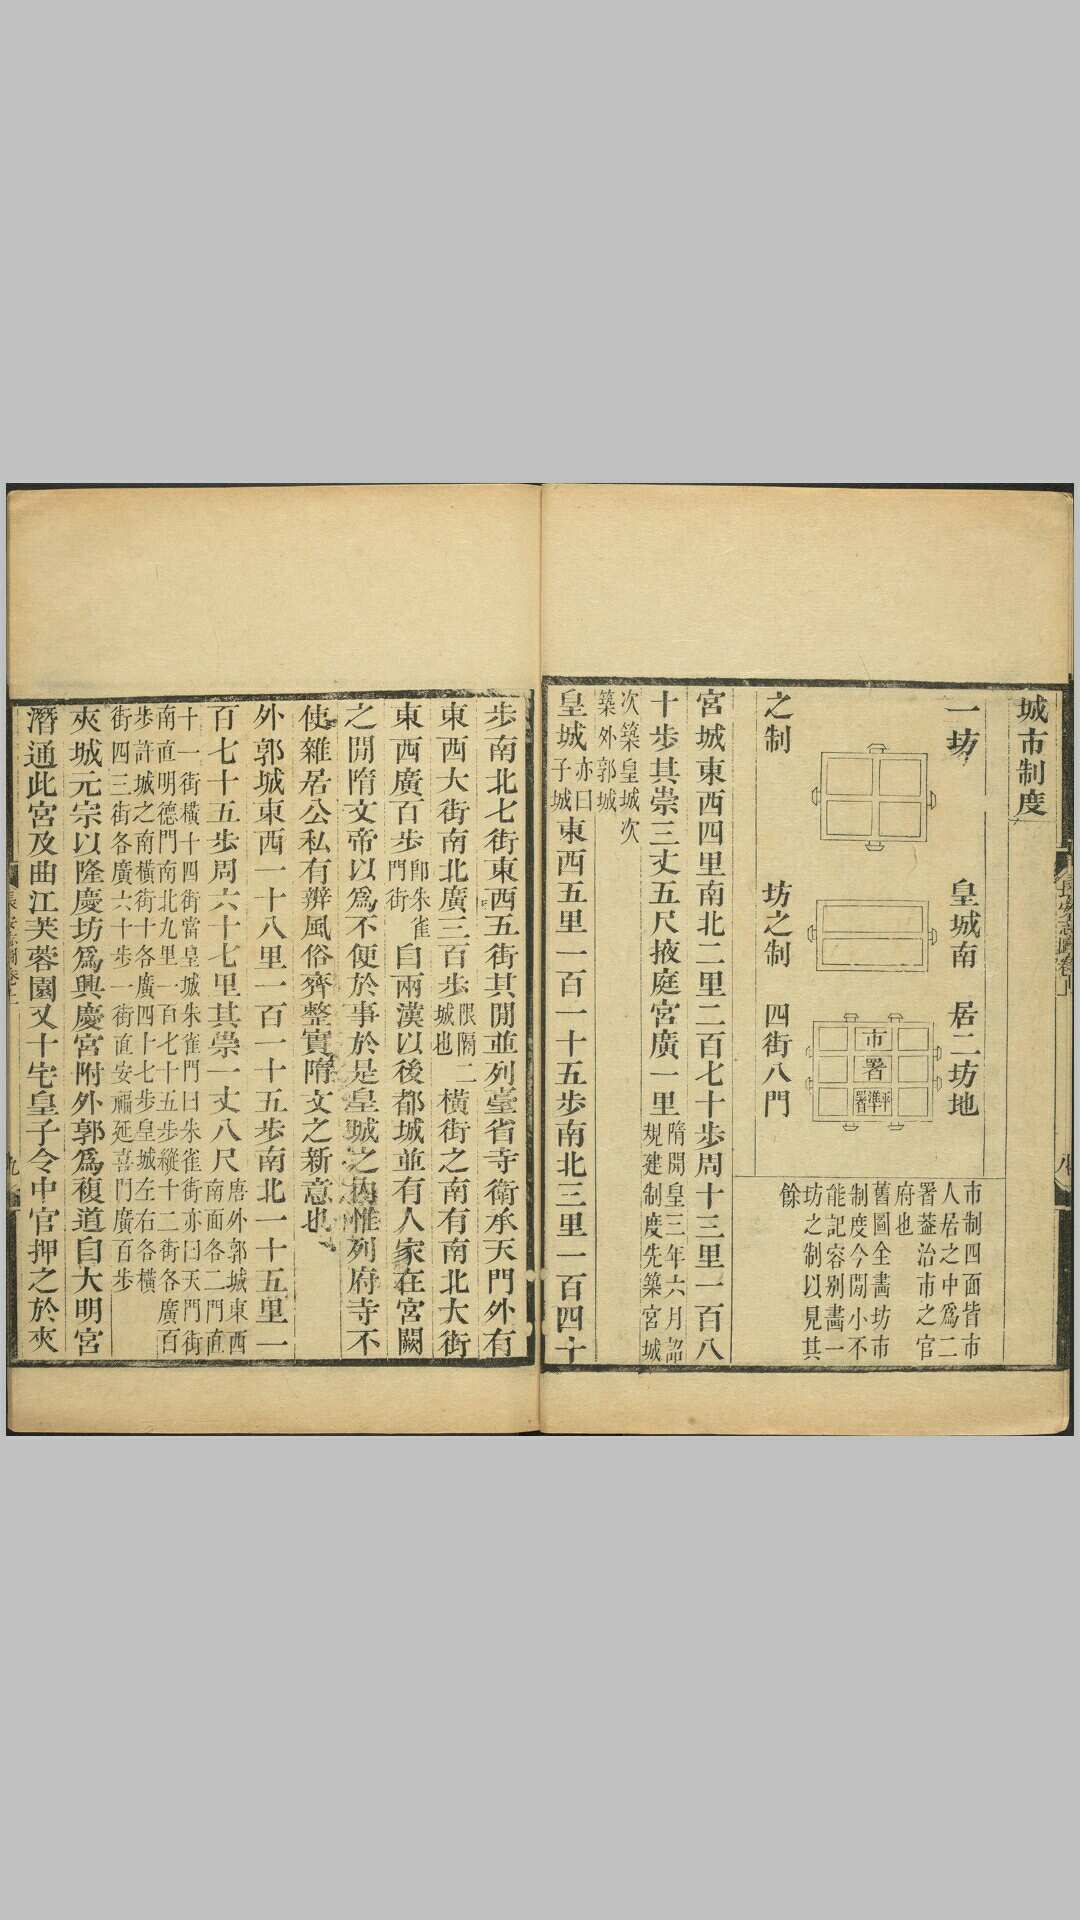 城市制度
一坊
皇城南
居二坊地
市署
平準署
之制
坊之制
四街八門
市制四面皆市
人居之中爲二
署葢治市之官
府也
舊圖全畵坊市
制度今閒小不
能記容别畵一
坊之制以見其
餘
宮城東西四里南北二里二百七十步周十三里一百八
十步其崇三丈五尺掖庭宮廣一里隋開皇三年六月詔
規建制度先築宮城
次築皇城次
築外郭城
皇城亦曰
子城東西五里一百一十五步南北三里一百四十
步南北七街東西五街其閒並列臺省寺衛承天門外有
東西大街南北廣三百步限隔二
城也橫街之南有南北大街
東西廣百步卽朱雀
門街自兩漢以後都城並有人家在宮闕
之閒隋文帝以爲不便於事於是皇城之內惟列府寺不
使雜居公私有辨風俗齊整實隋文之新意也
外郭城東西一十八里一百一十五步南北一十五里一
百七十五步周六十七里其崇一丈八尺唐外郭城東西
南面各二門直
十一街橫十四街當皇城朱雀門曰朱雀街亦曰天門街
南直明德門南北九里一百七十五步縱十二街各廣百
步許城之南橫街十各廣四十七步皇城左右各橫
街四三街各廣六十步一街直安福延喜門廣百步
夾城元宗以隆慶坊爲興慶宮附外郭爲複道自大明宮
潛通此宮及曲江芙蓉園又十宅皇子令中官押之於夾